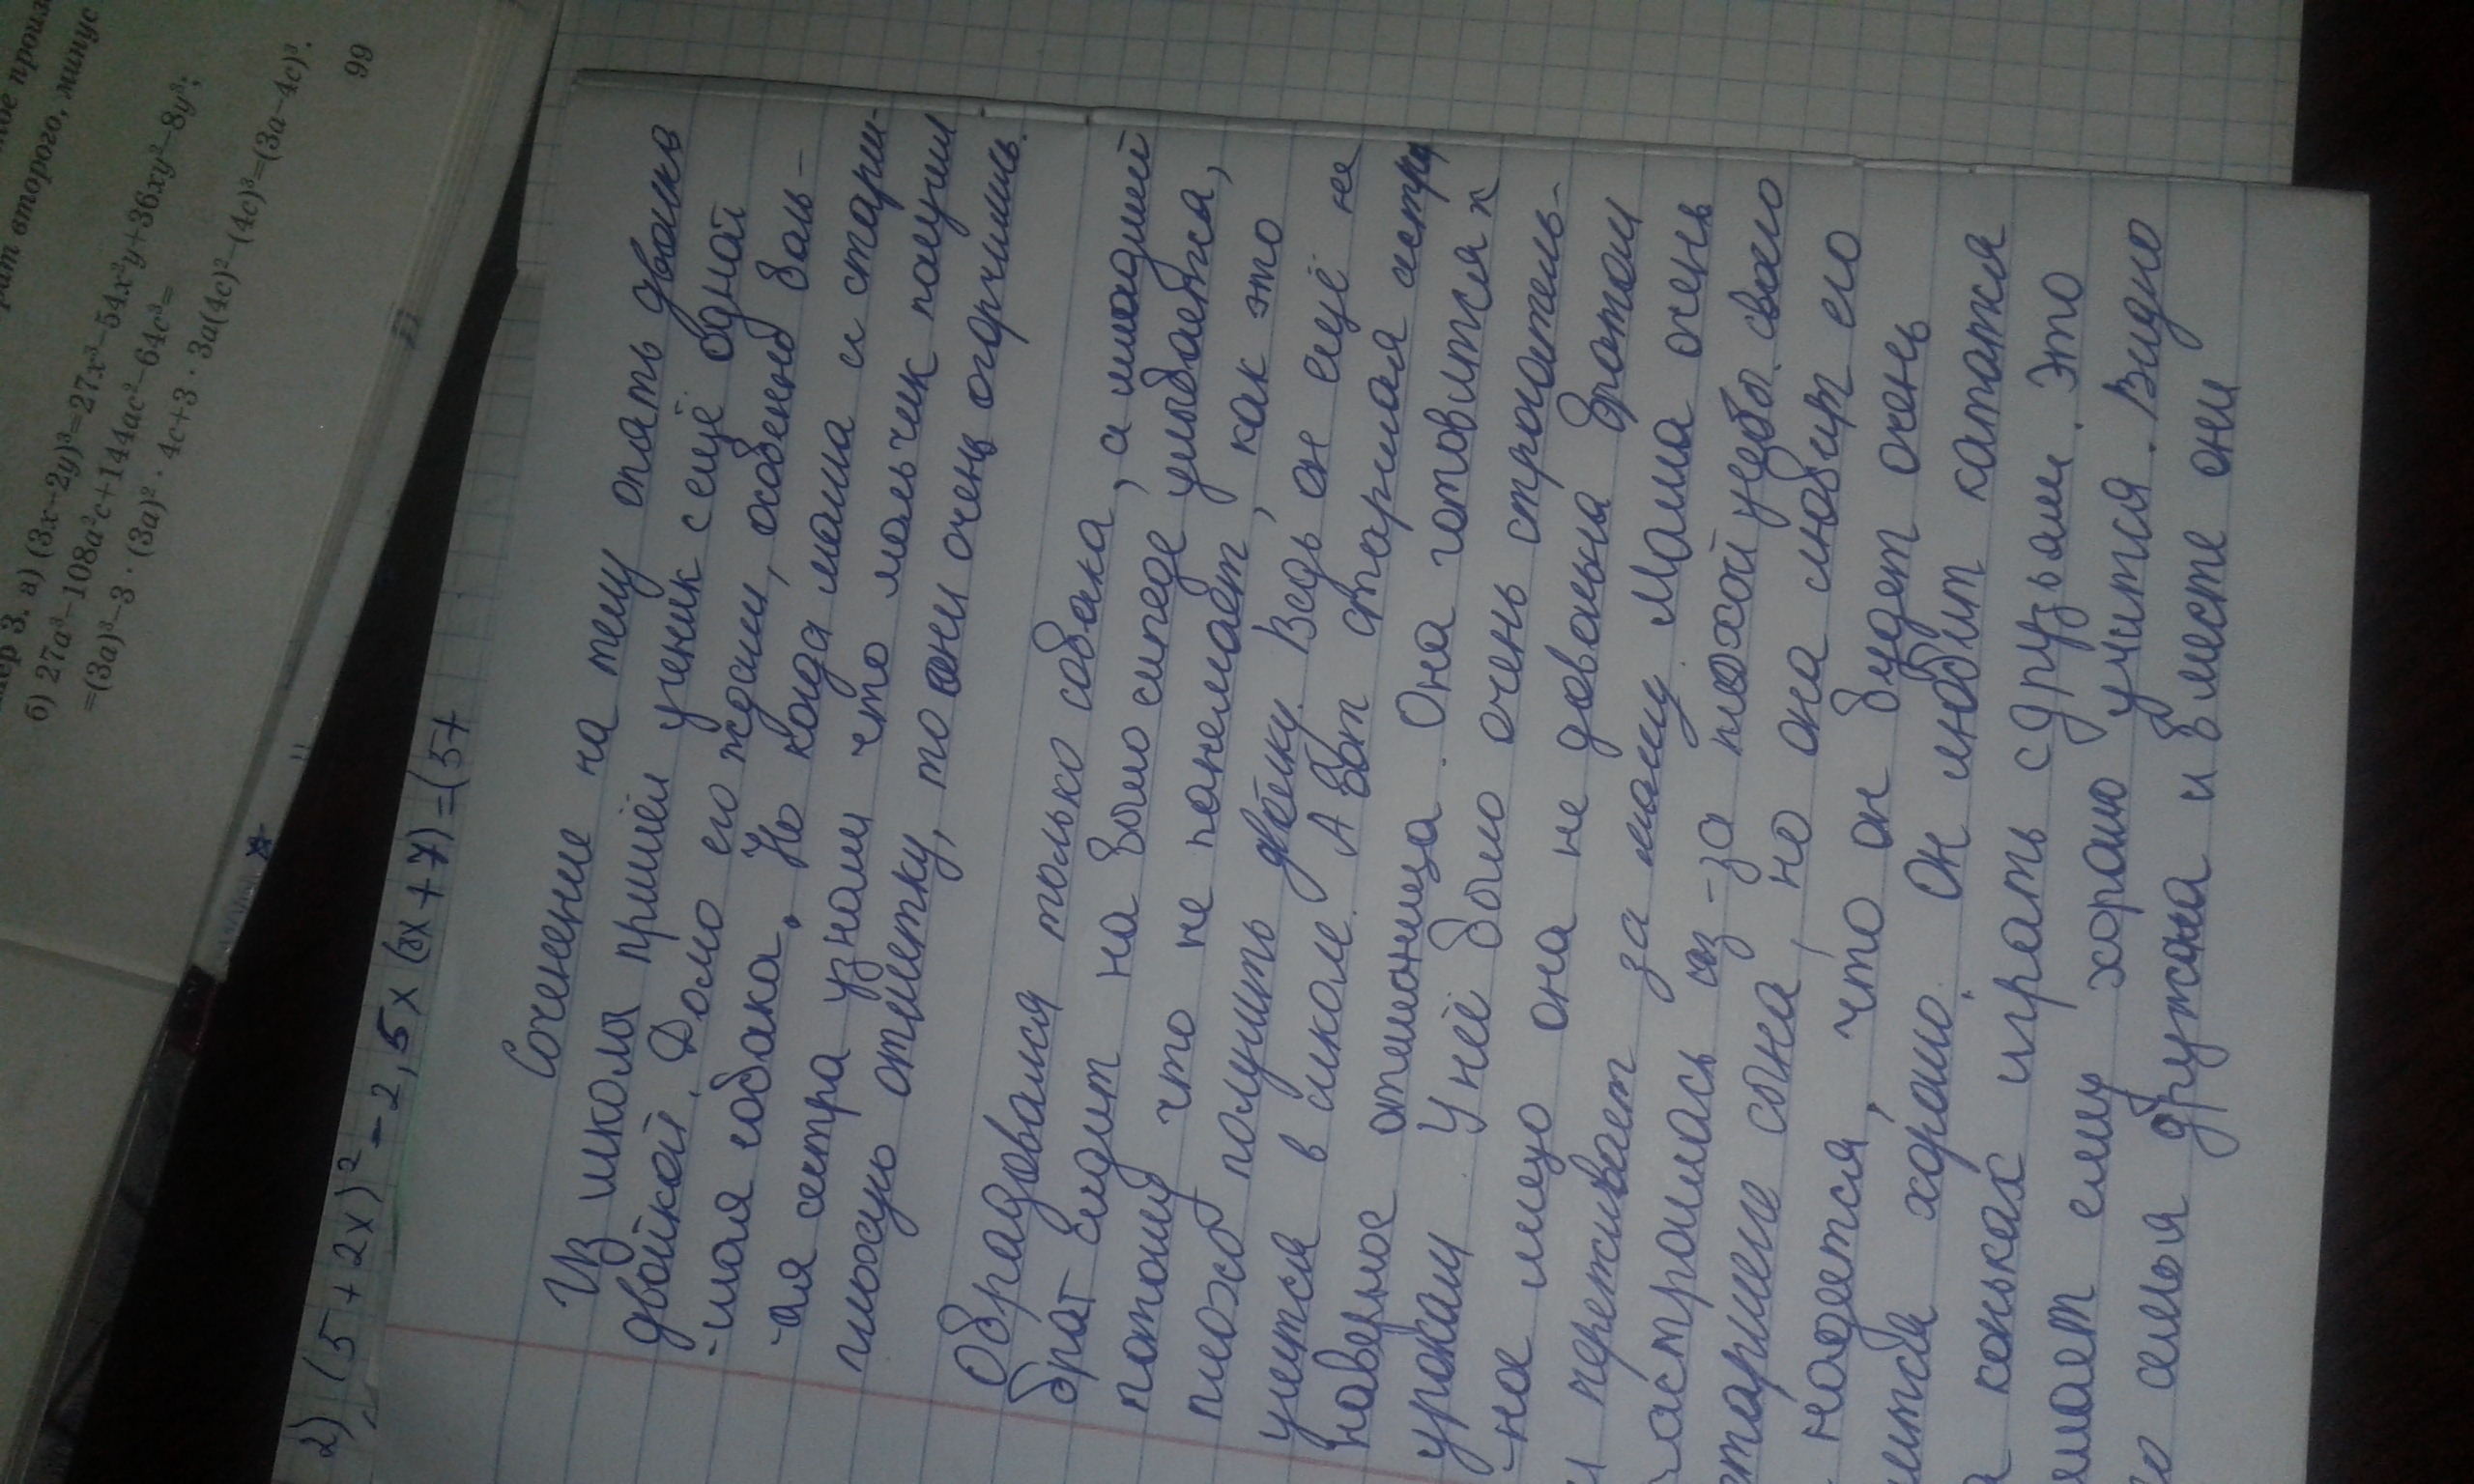 ное произв
рат второго, минус
мер 3. а) (3x−2y)³=27x³−54x²y+36xy²−8y³;
б) 27a³−108a²c+144ac²−64c³=
=(3a)³−3·(3a)²·4c+3·3a(4c)²−(4c)³=(3a−4c)³.
99
2) (5+2x)²−2,5x(8x+7)=(5+
Соченение на тему опять двойка
Из школы пришёл ученик с ещё одной
двойкой. Дома его ждали, особенно боль-
-шая собака. Но когда мама и старш-
-ая сестра узнали что мальчик получил
плохую отметку, то они очень огорчились.
Обрадовался только собака, а младший
брат сидит на велосипеде улыбается,
потому что не понемает, как это
плохо получить двойку. Ведь он ещё не
учится в школе. А вот старшая сестра
наверное отличница. Она готовится к
урокам. У неё было очень строгатель-
-ное лицо она не довольна братом
и переживает за маму. Мама очень
растроилась из-за плохой учебы своего
старшего сына, но она любит его
надеется, что он будет очень
учится хорошо. Он любит кататся
а коньках играть с друзьям. Это
мает ему хорошо учится. Видно
о семья дружная и вместе они